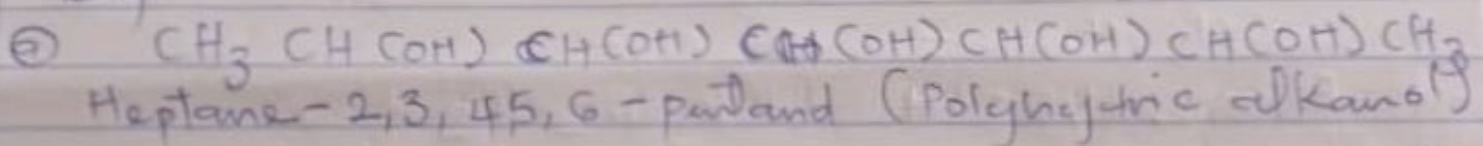 ② CH₃ CH(OH) CH(OH) CH(OH) CH(OH) CH(OH) CH₃
Heptane-2,3,45,6-pentanol (Polyhydric alkanol)